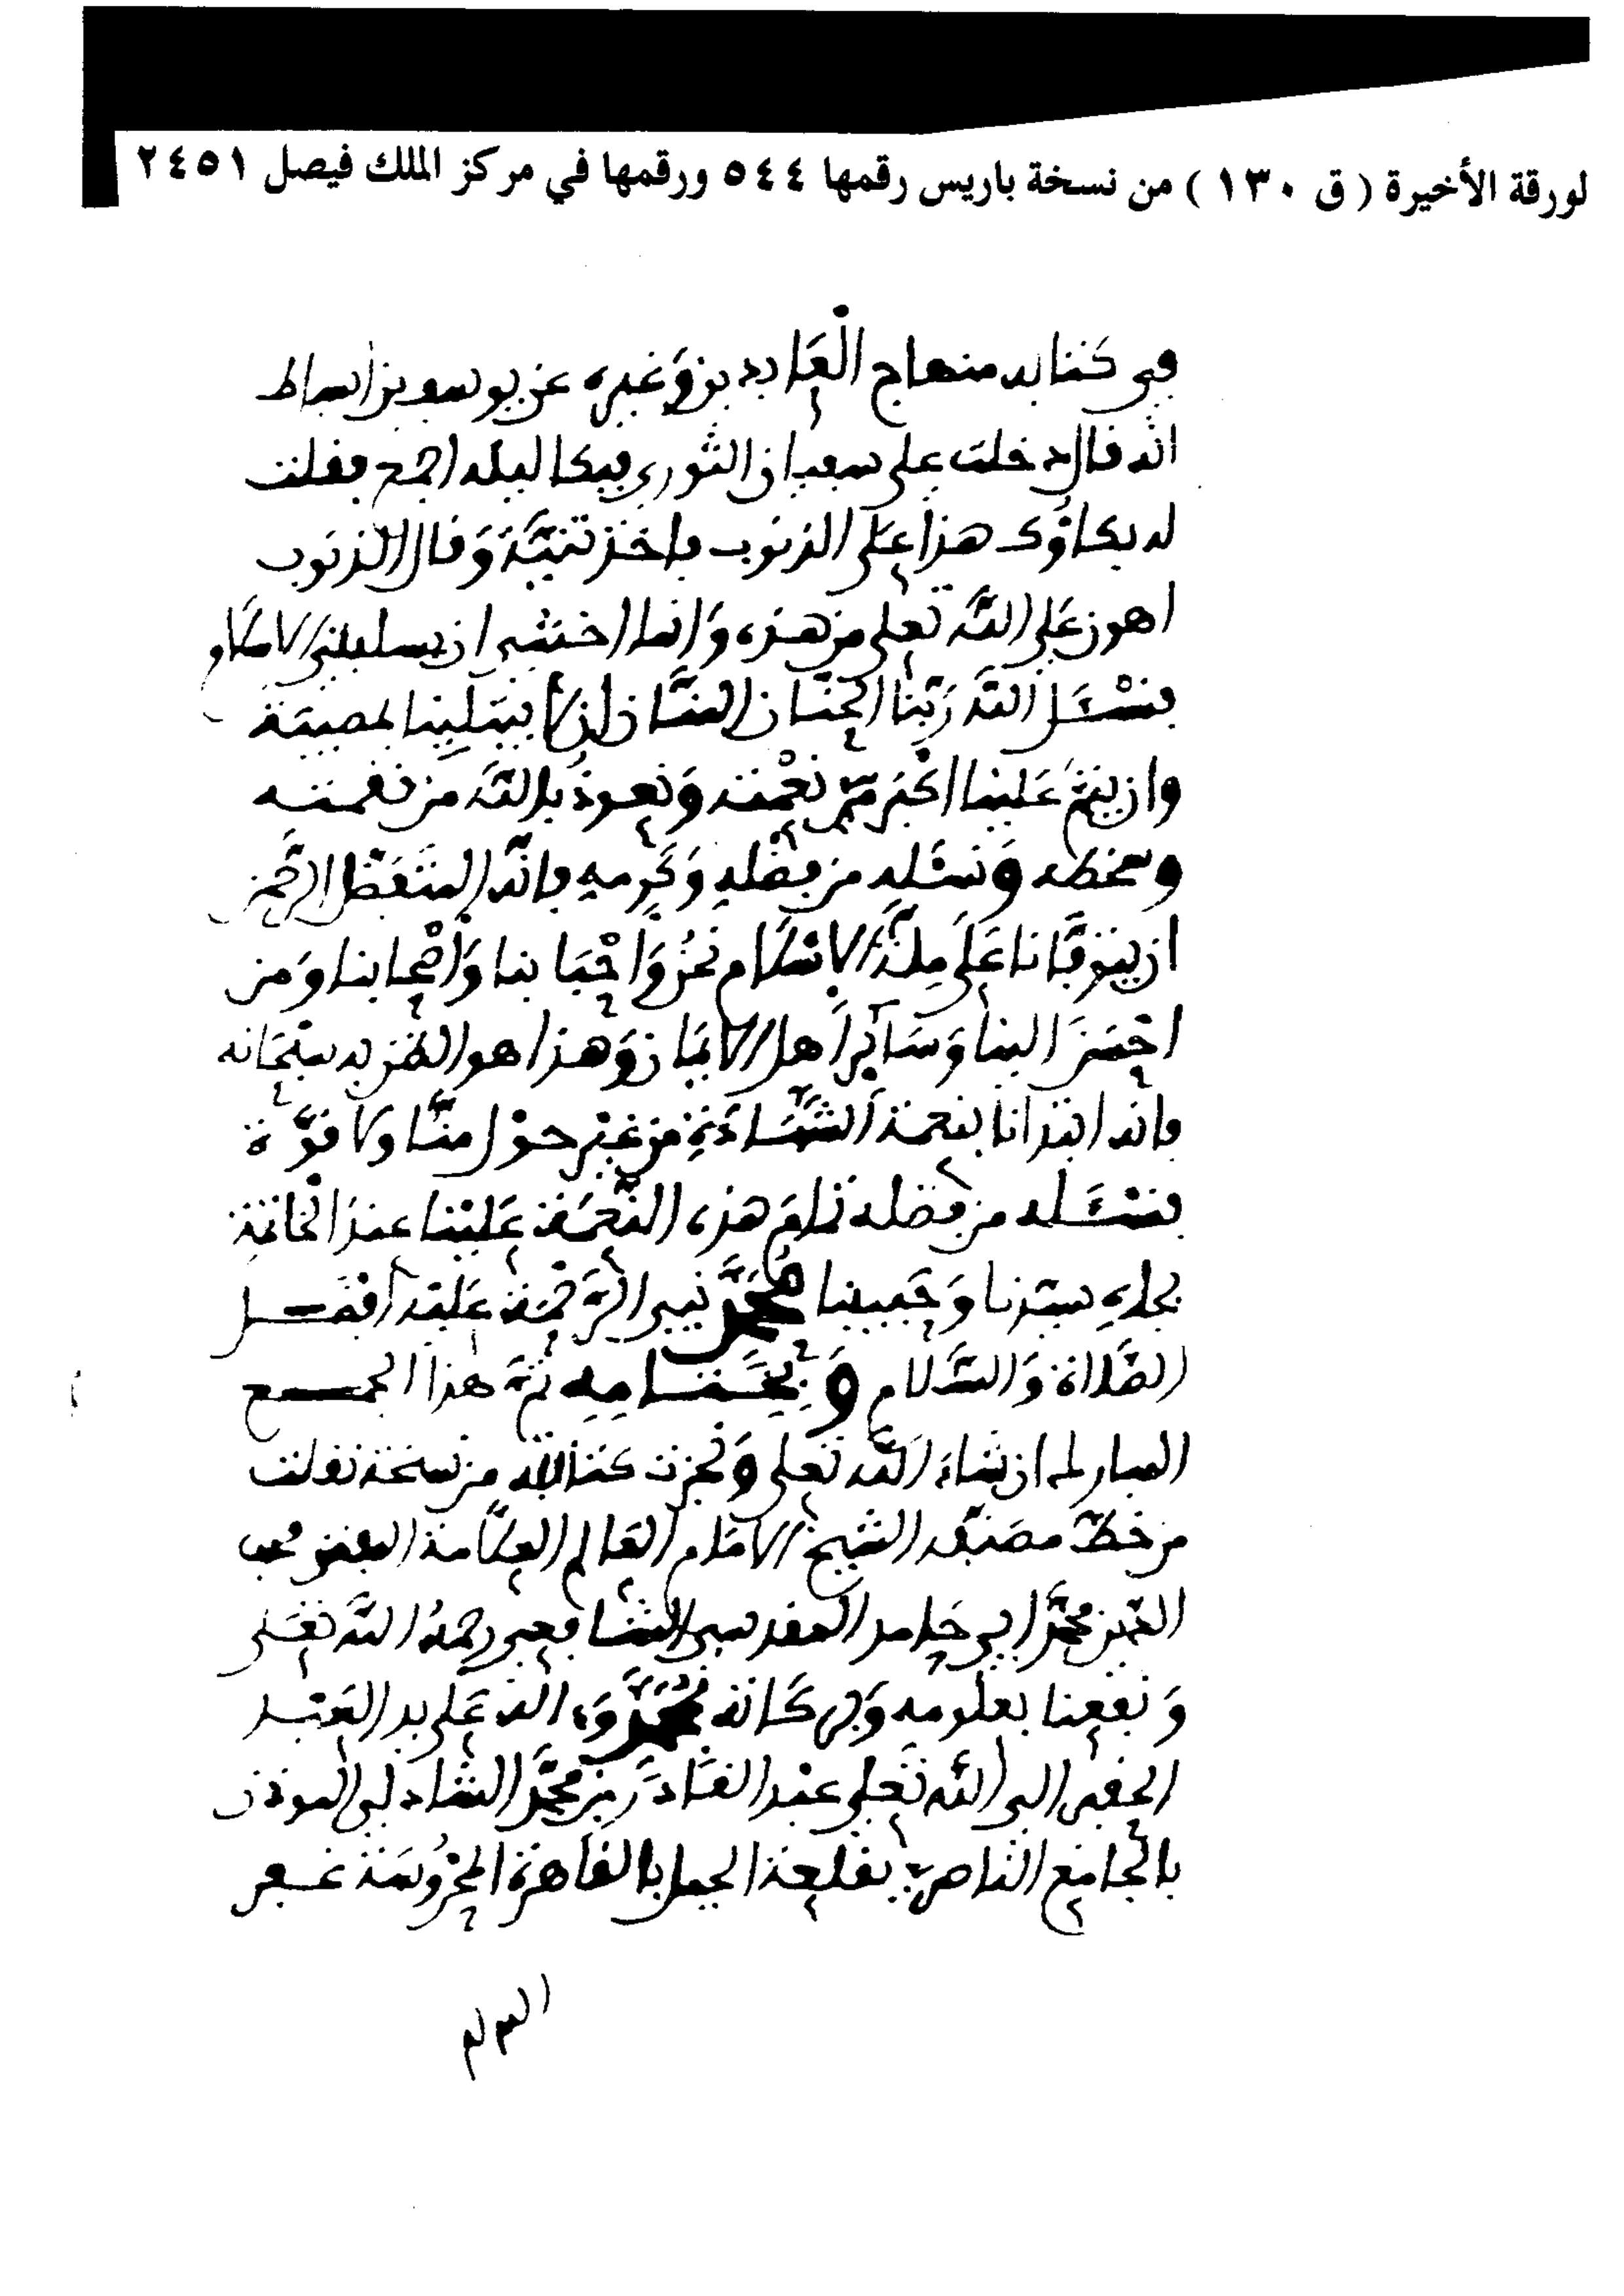 لورقة الأخيرة ( ق ١٣٠ ) من نسخة باريس رقمها ٥٤٤ ورقمها في مركز الملك فيصل ٢٤٥١
في كتابه منهاج العابدين وغيره عن يوسف بن اسباط
انه قال دخلت على سفيان الثوري فبكا ليله اجمع فقلت
له بكاؤك هذا على الذنوب فاخذ تبنة وقال الذنوب
اهون على الله تعلى من هذه وانما اخشى ان يسلبني الاسلام
فنسئل الله ربنا الحنان المنان ان لا يبتلينا بمصيبة
وان يتم علينا اكبر نعمته ونعوذ بالله من نقمته
وسخطه ونسئله من فضله وكرمه فانه المتفضل الرحمن
ان يتوفانا على ملة الاسلام نحن واحبابنا واصحابنا ومن
احسن الينا وسائر اهل الايمان وهذا هو الظن به سبحانه
فانه ابتدانا بنعمة الشهادة من غير حول منا ولا قوة
فنسئله من فضله تمام هذه النعمة علينا عند الخاتمة
بجاه سيدنا وحبيبنا محمد نبي الرحمة عليه افضل
الصلاة والسلام وبختامه تم هذا الجمع
المبارك ان شاء الله تعلى ونجزت كتابته من نسخة نقلت
من خط مصنفه الشيخ الامام العالم العلامة محب
الدين محمد ابي حامد المقدسي الشافعي رحمه الله تعلى
ونفعنا بعلومه وبركاته بمحمد وءاله على يد العبد
الفقير الى الله تعلى عبد القادر بن محمد الشاذلي الموذن
بالجامع الناصري بقلعة الجبل بالقاهرة المحروسة غفر